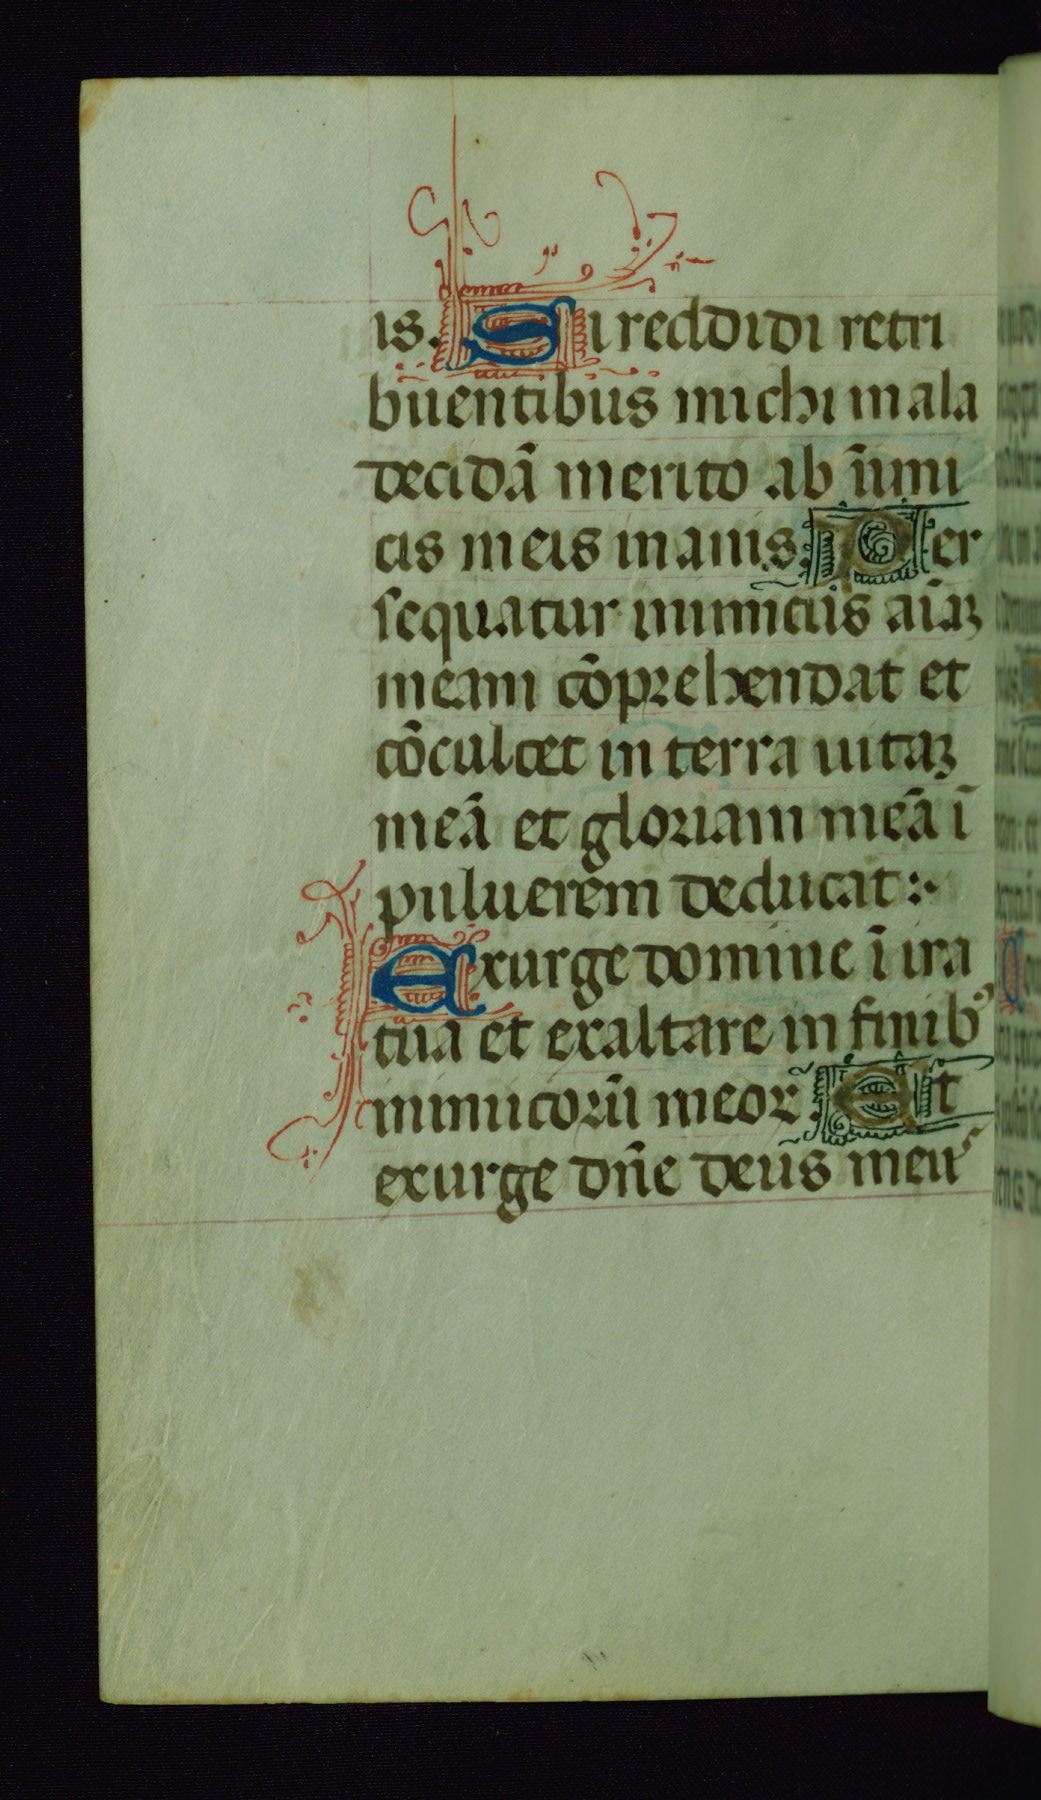 is. Si reddidi retri
buentibus michi mala
decidā merito ab inimi
cis meis inanis. Per
sequatur inimicus aīaꝫ
meam cōprehendat et
cōculcet in terra uitaꝫ
meā et gloriam meā ī
puluerem deducat :·
Exurge domine ī ira
tua et exaltare in finibꝰ
inimicorū meor. Et
exurge dn̄e deus meus